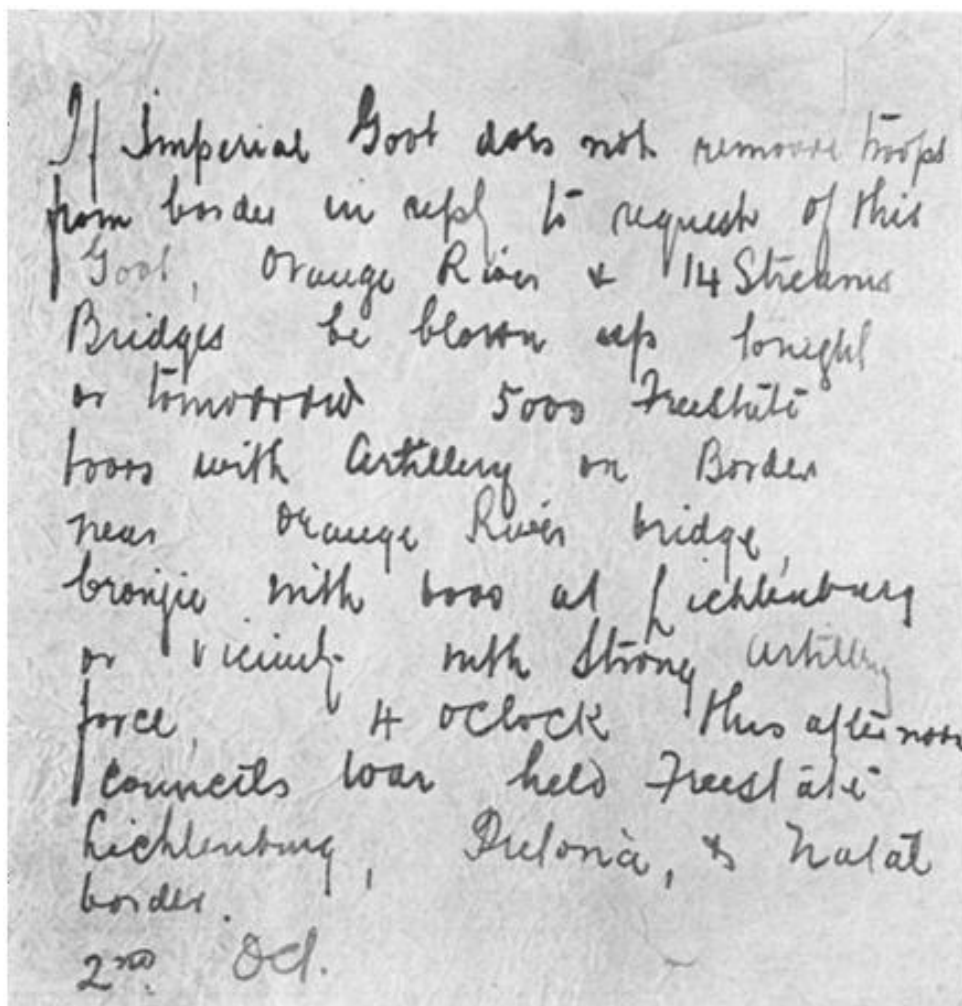 If Imperial Govt does not remove troops
from border in reply to request of this
Govt, Orange River & 14 Streams
Bridges be blown up tonight
or tomorrow 5000 Freestate
with artillery on Border
near Orange River bridge,
with at Lichtenburg
or vicinity with strong artillery
force, 4 oClock this afternoon
councils war held Freestate
Lichtenburg, Pretoria, & Natal
border.
2nd Oct.